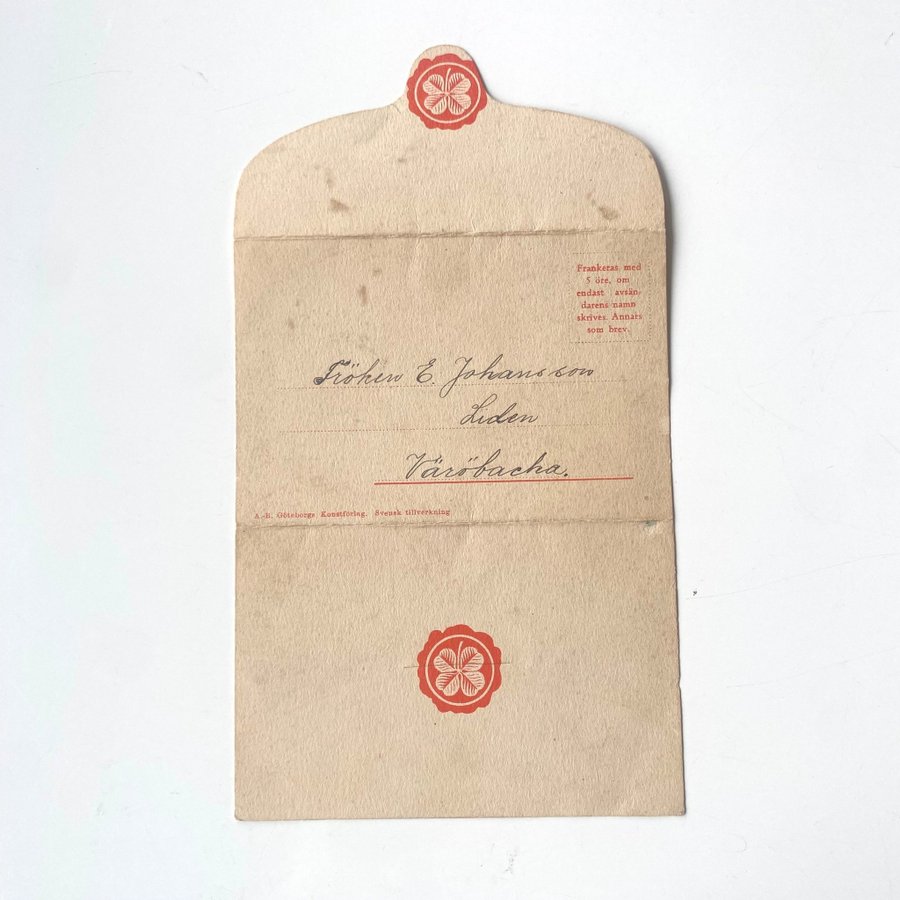 Frankeras med
5 öre, om
endast avsän-
darens namn
skrives. Annars
som brev.
Fröken E. Johansson
Liden
Väröbacka.
A.-B. Göteborgs Konstförlag. Svensk tillverkning